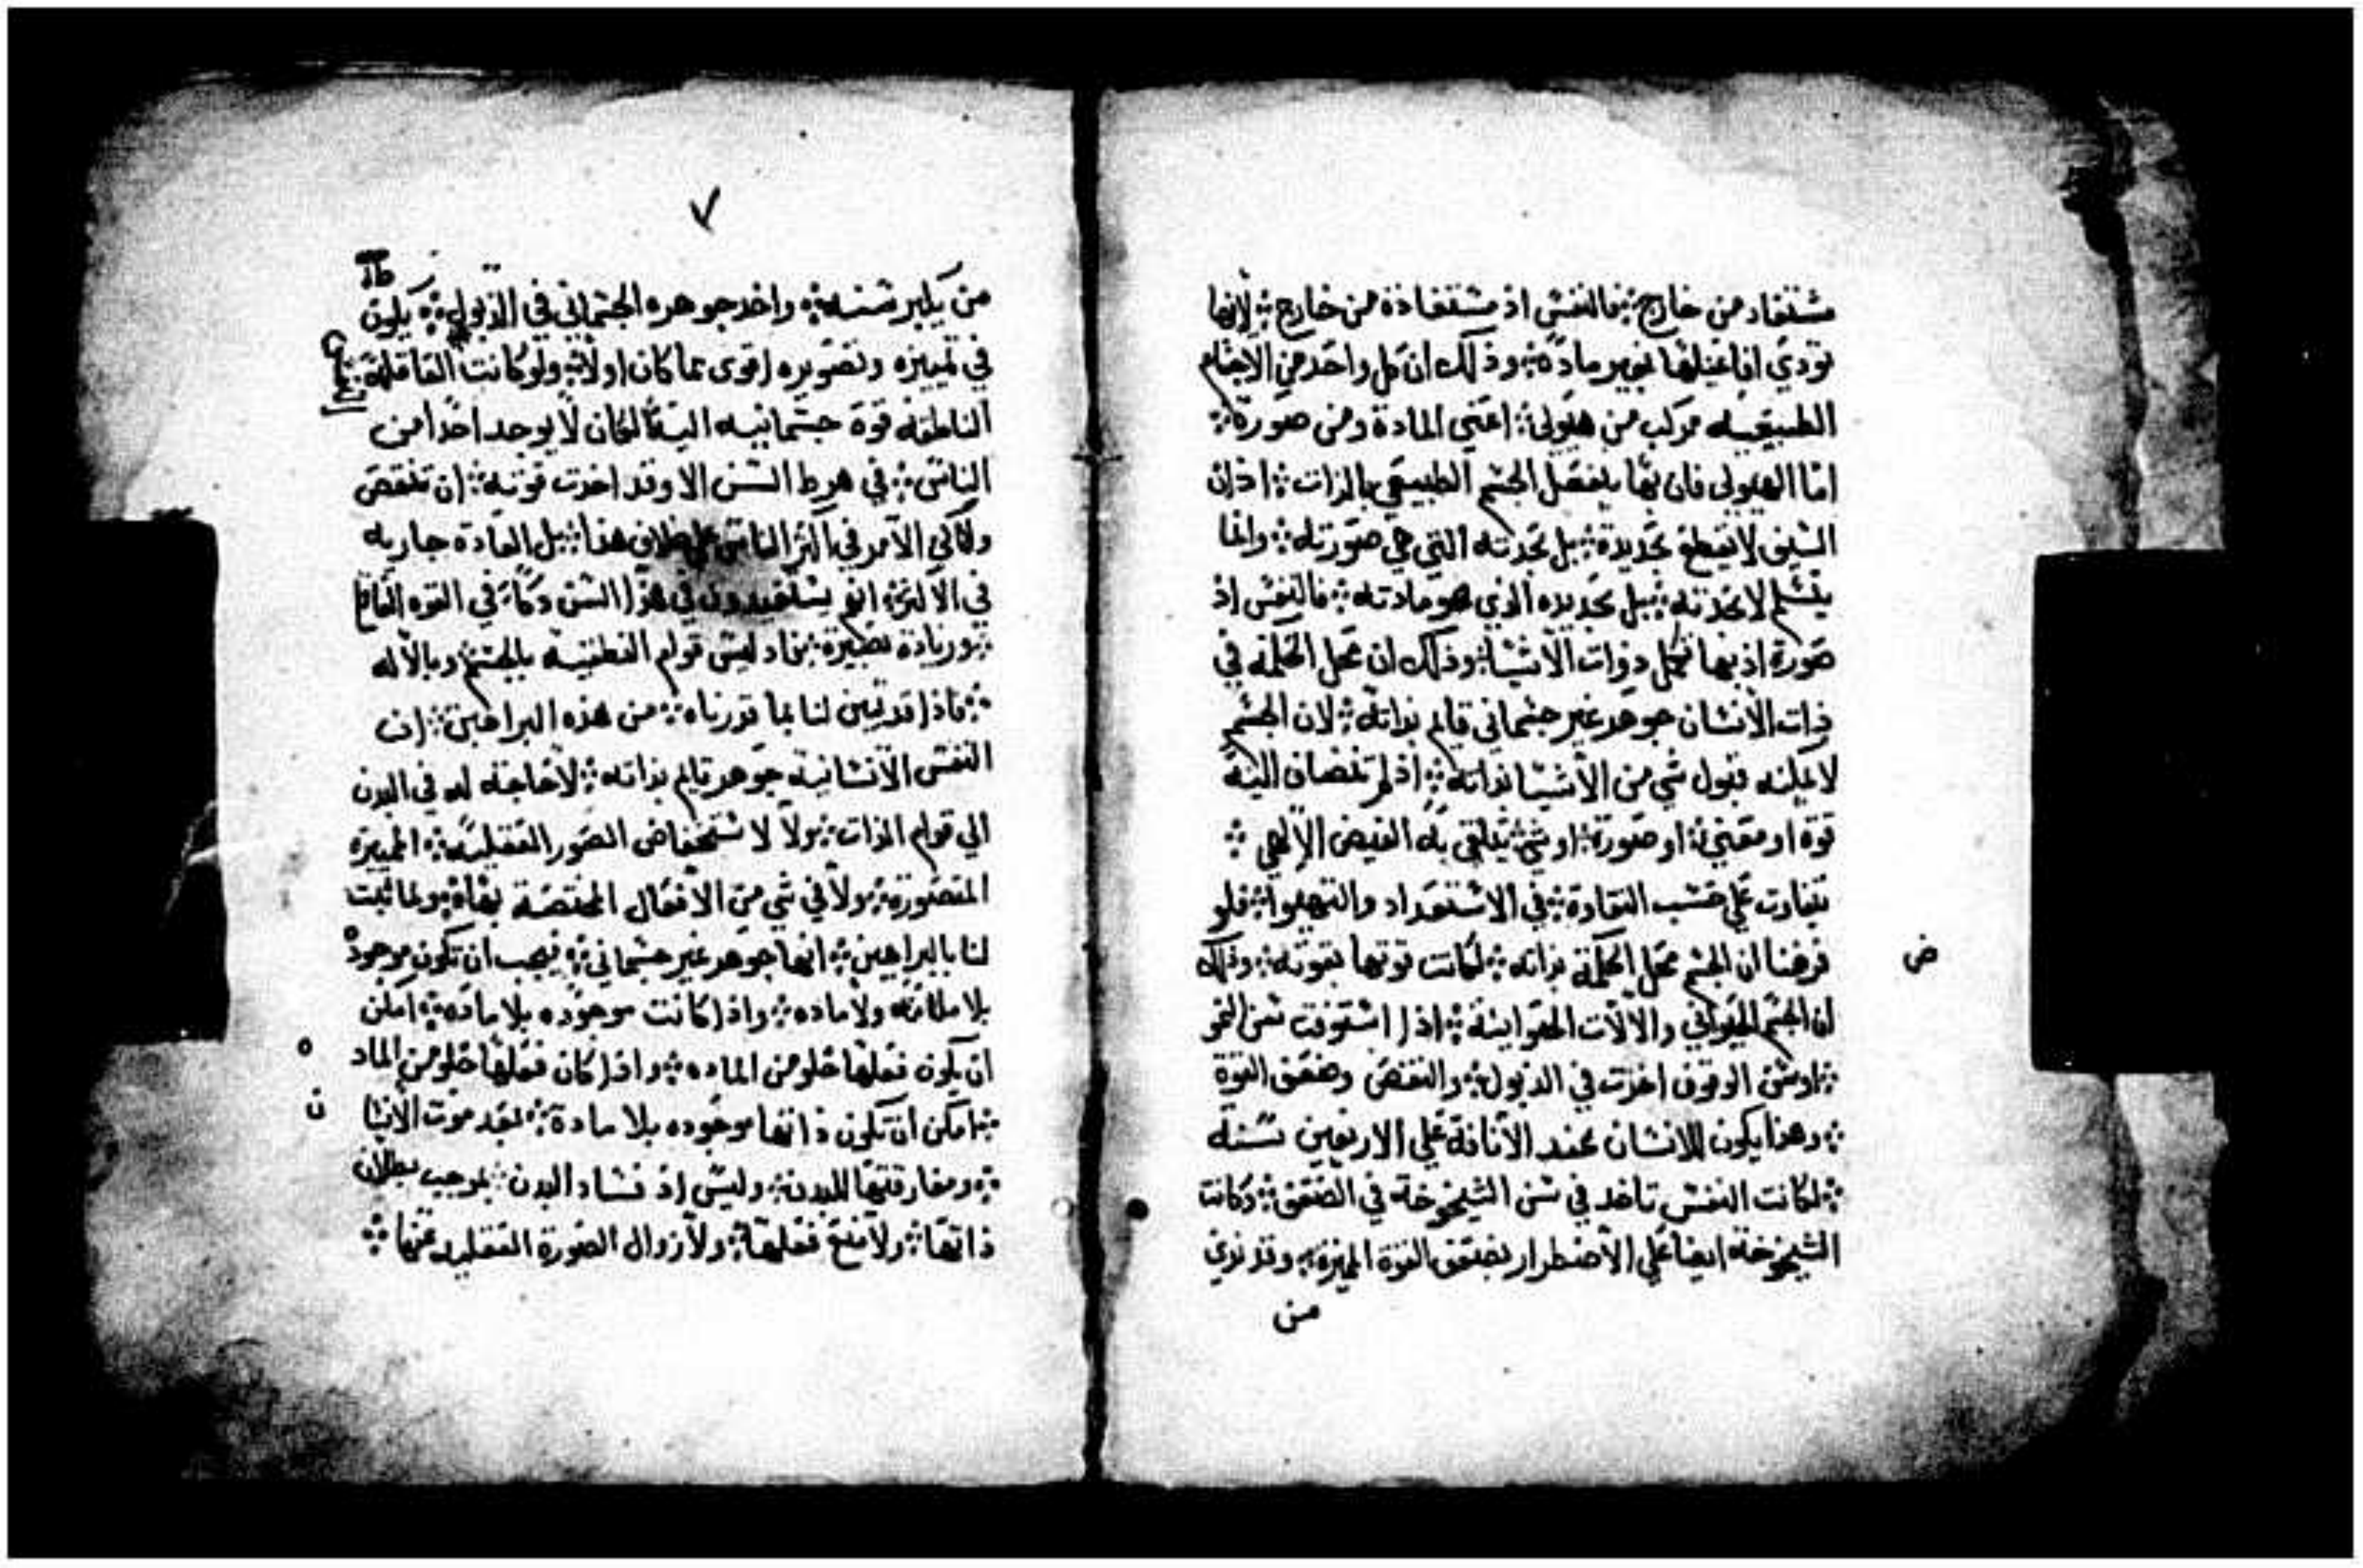 مستفاد من خارج ܀ فالنفس اذ مستفادة من خارج ܀ لانها
تودي افاعيلها بغير مادة ܀ وذلك ان كل واحد من الاجسام
الطبيعيه مركب من هيولي ܀ اعني المادة ومن صورة ܀
اما الهيولي فان بها ينفصل الجسم الطبيعي بالذات ܀ اذ ان
السيف لا يقطع بحديدة ܀ بل بحدته التي هي صورته ܀ وانما
ينثلم لا بحدته ܀ بل بحديده الذي هو مادته ܀ فالنفس اذ
صورة اذ بها تكمل ذوات الاشيا ܀ وذلك ان محل الحكمة في
ذات الانسان جوهر غير جسماني قايم بذاته ܀ لان الجسم
لا يمكنه قبول شي من الاشيا بذاته ܀ اذ لم تنضاف اليه
قوة او معني ܀ او صورة ܀ او شي يتلقي به الفيض الالهي ܀
تفاوت علي حسب التفادة ܀ في الاستعداد والتهيوا ܀ فلو
فرضنا ان الجسم محل الحكمة بذاته ܀ لكانت قوتها بقوته ܀ وذلك
ض
ان الجسم الحيواني والالات الحيوانية ܀ اذا استوفت سن النمو
܀ او سن الوقوف اخذت في الذبول ܀ والنقص وضعف القوة
܀ وهذا يكون للانسان عند الانافة علي الاربعين سنة
܀ لكانت النفس تاخد في سن الشيخوخة في الضعف ܀ وكانت
الشيخوخة ايضا علي الاضطرار بضعف القوة المميزة ܀ وقد نري
من
٧
من يكبر سنه ܀ واخد جوهره الجسماني في الذبول ܀ يكون
في تمييزه وتصويره اقوي مما كان اولا ܀ ولو كانت العاقلة
الناطقه قوة جسمانيه البتة لكان لا يوجد احدا من
الناس ܀ في هذا السن الا وقد اخدت قوته ܀ ان تنقص
ولكن الامر في اكثر الناس علي خلاف هذا ܀ بل العادة جاريه
في الاكثر انهم يستفيدون في هذا السن ذكاء في القوه العاقلة
܀ وزيادة بصيرة ܀ فاد ليس قوام النطقية بالجسم وبالاله
܀ فاذا قد تبين لنا بما قدرناه ܀ من هذه البراهين ܀ ان
النفس الانسانية جوهر قايم بذاته ܀ لا حاجة له في البدن
الي قوام الذات ܀ ولا لاستحفاض الصور العقلية ܀ المميزة
المتصورة ܀ ولا في شي من الافعال المختصة بها ܀ ولما ثبت
لنا بالبراهين ܀ انها جوهر غير جسماني ܀ فيجب ان تكون موجودة
بلا مكانه ولا ماده ܀ واذا كانت موجوده بلا ماده ܀ امكن
ان يكون فعلها خلو من الماده ܀ واذا كان فعلها خلو من الماد
ه
܀ امكن ان تكون ذاتها موجوده بلا مادة ܀ بعد موت الانسا
ن
܀ ومفارقتها للبدن ܀ وليس اذ فساد البدن ܀ يوجب بطلان
ذاتها ܀ ولا منع فعلها ܀ ولا زوال الصورة العقليه عنها ܀